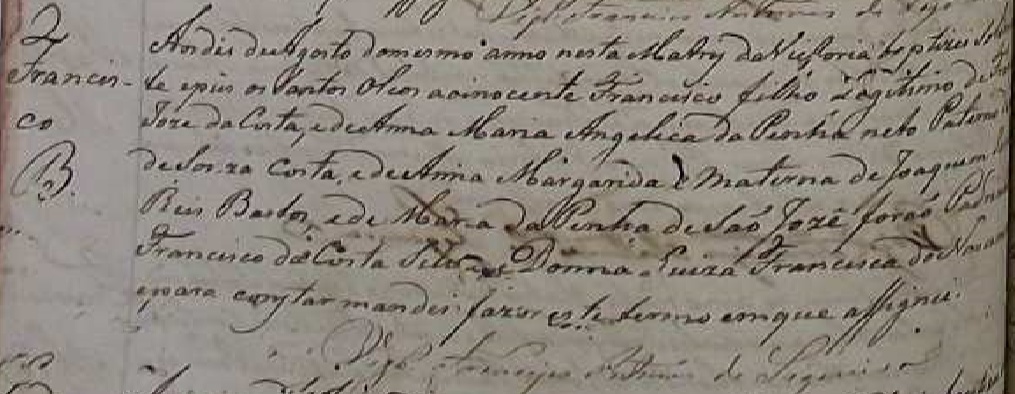 Vigr.º Francisco Antonio de
Francis-
co
B.
Aos dés de Agosto do mesmo anno nesta Matriz da Victoria baptizei
te epus os Santos Oleos ao inocente Francisco filho Lagitimo de
Joze da Costa, e de Anna Maria Angelica da Penha neto Paterno
de Souza Costa, e de Anna Margarida e Materna de Joaquim
Reis Bastos, e de Maria da Penha de São Jozé forão Padri
Francisco da Costa Donna Luiza Francisca do Nas
epara constar mandei fazer este termo em que assignei.
Vigr.º Francisco Antonio de Siqueira